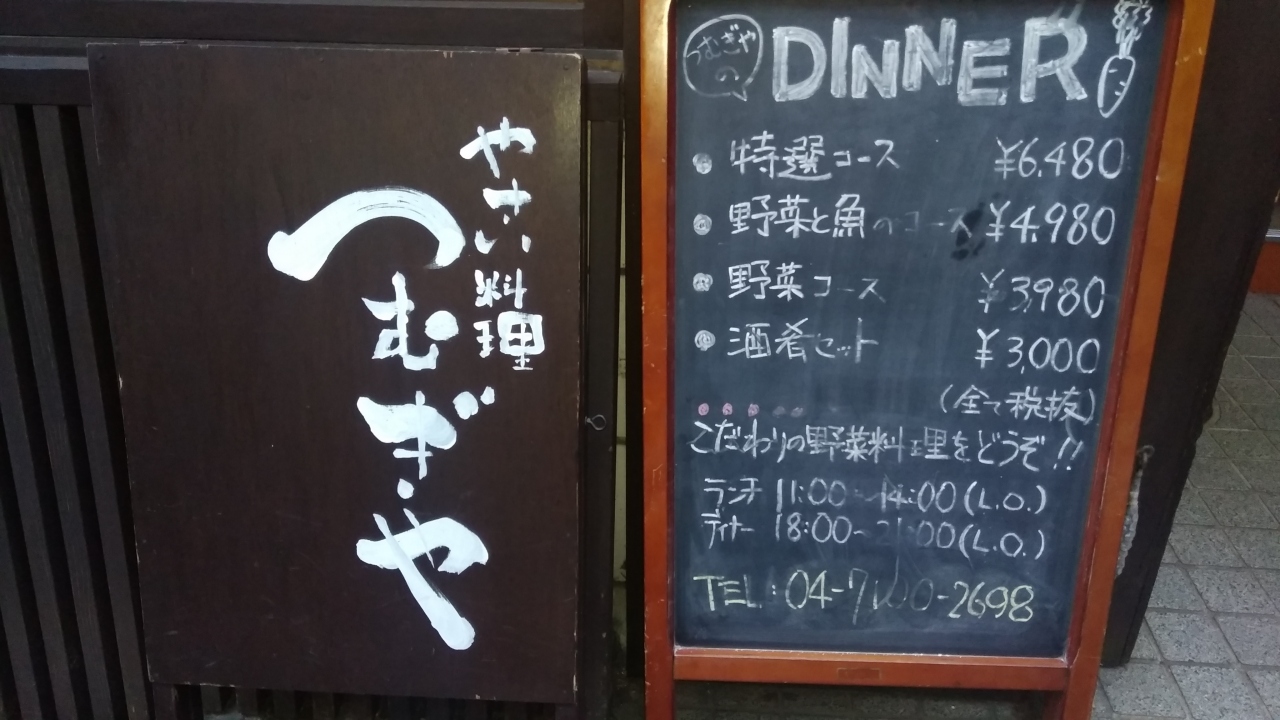 やさい料理
つむぎや
つむぎや
の
DINNER
特選コース ¥6,480
野菜と魚のコース ¥4,980
野菜コース ¥3,980
酒肴セット ¥3,000
(全て税抜)
こだわりの野菜料理をどうぞ!!
ランチ 11:00-14:00(L.O.)
ディナー 18:00~21:00(L.O.)
TEL:04-7100-2698